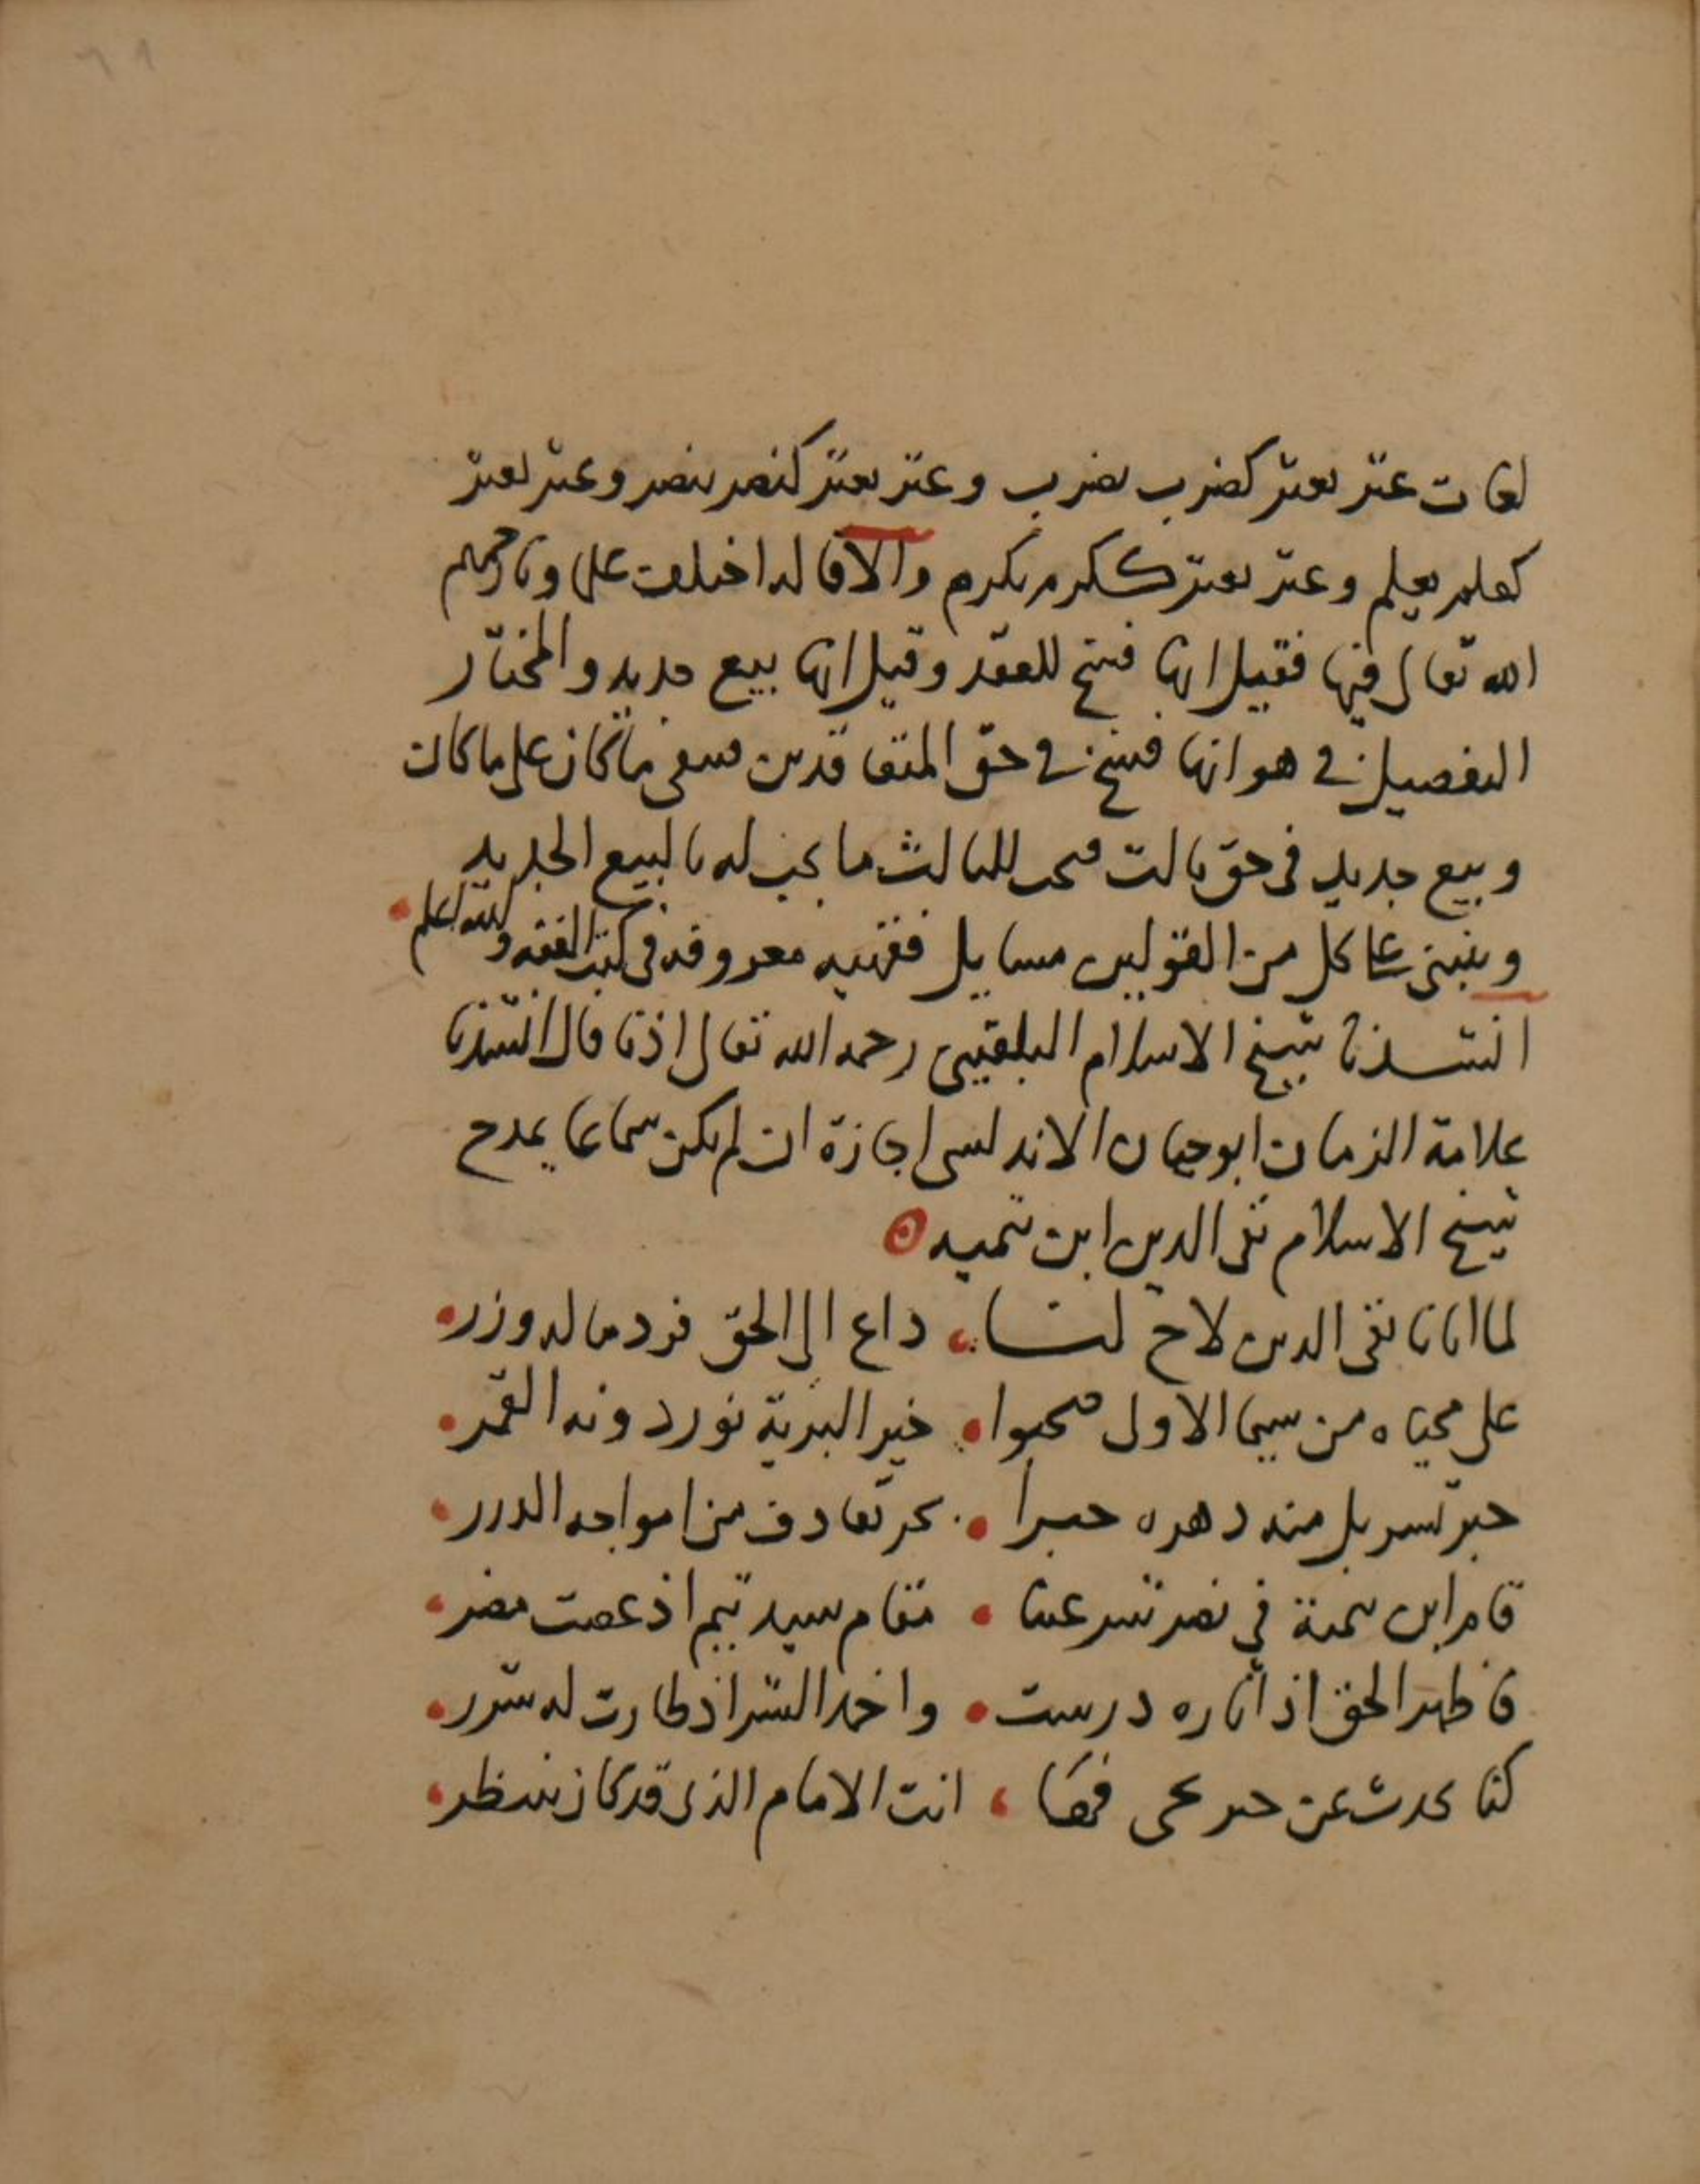 لغات عثر يعثر كضرب يضرب وعثر يعثر كنصر ينصر وعثر يعثر
كعلم يعلم وعثر يعثر ككرم يكرم والاقاله اختلفت علماونا رحمهم
الله تعالى فيها فقيل انها فسخ للعقد وقيل انها بيع جديد والمختار
التفصيل في هو انها فسخ في حق المتعاقدين فسعى ما كان على ما كان
وبيع جديد في حق ثالث فيجب للثالث ما يجب له بالبيع الجديد
وينبني على كل من القولين مسايل فقهيه معروفه في كتب الفقه والله اعلم
انشدنا شيخ الاسلام البلقيني رحمه الله تعالى اذنا قال انشدنا
علامة الزمان ابو حيان الاندلسي اجازة ان لم يكن سماعا يمدح
شيخ الاسلام تقي الدين ابن تيميه
لما اتانا تقي الدين لاح لنا داع الى الحق فرد ماله وزر
على محياه من سيما الاولى صحبوا خير البرية نور دونه القمر
حبر تسربل منه دهره حبرا بحر تقاذف من امواجه الدرر
قام ابن تيمية في نصر شرعتنا مقام سيد تيم اذ عصت مضر
فاظهر الحق اذ آثاره درست واخمد الشر اذ طارت له شرر
كنا نحدث عن حبر يجي فها انت الامام الذي قد كان ينتظر